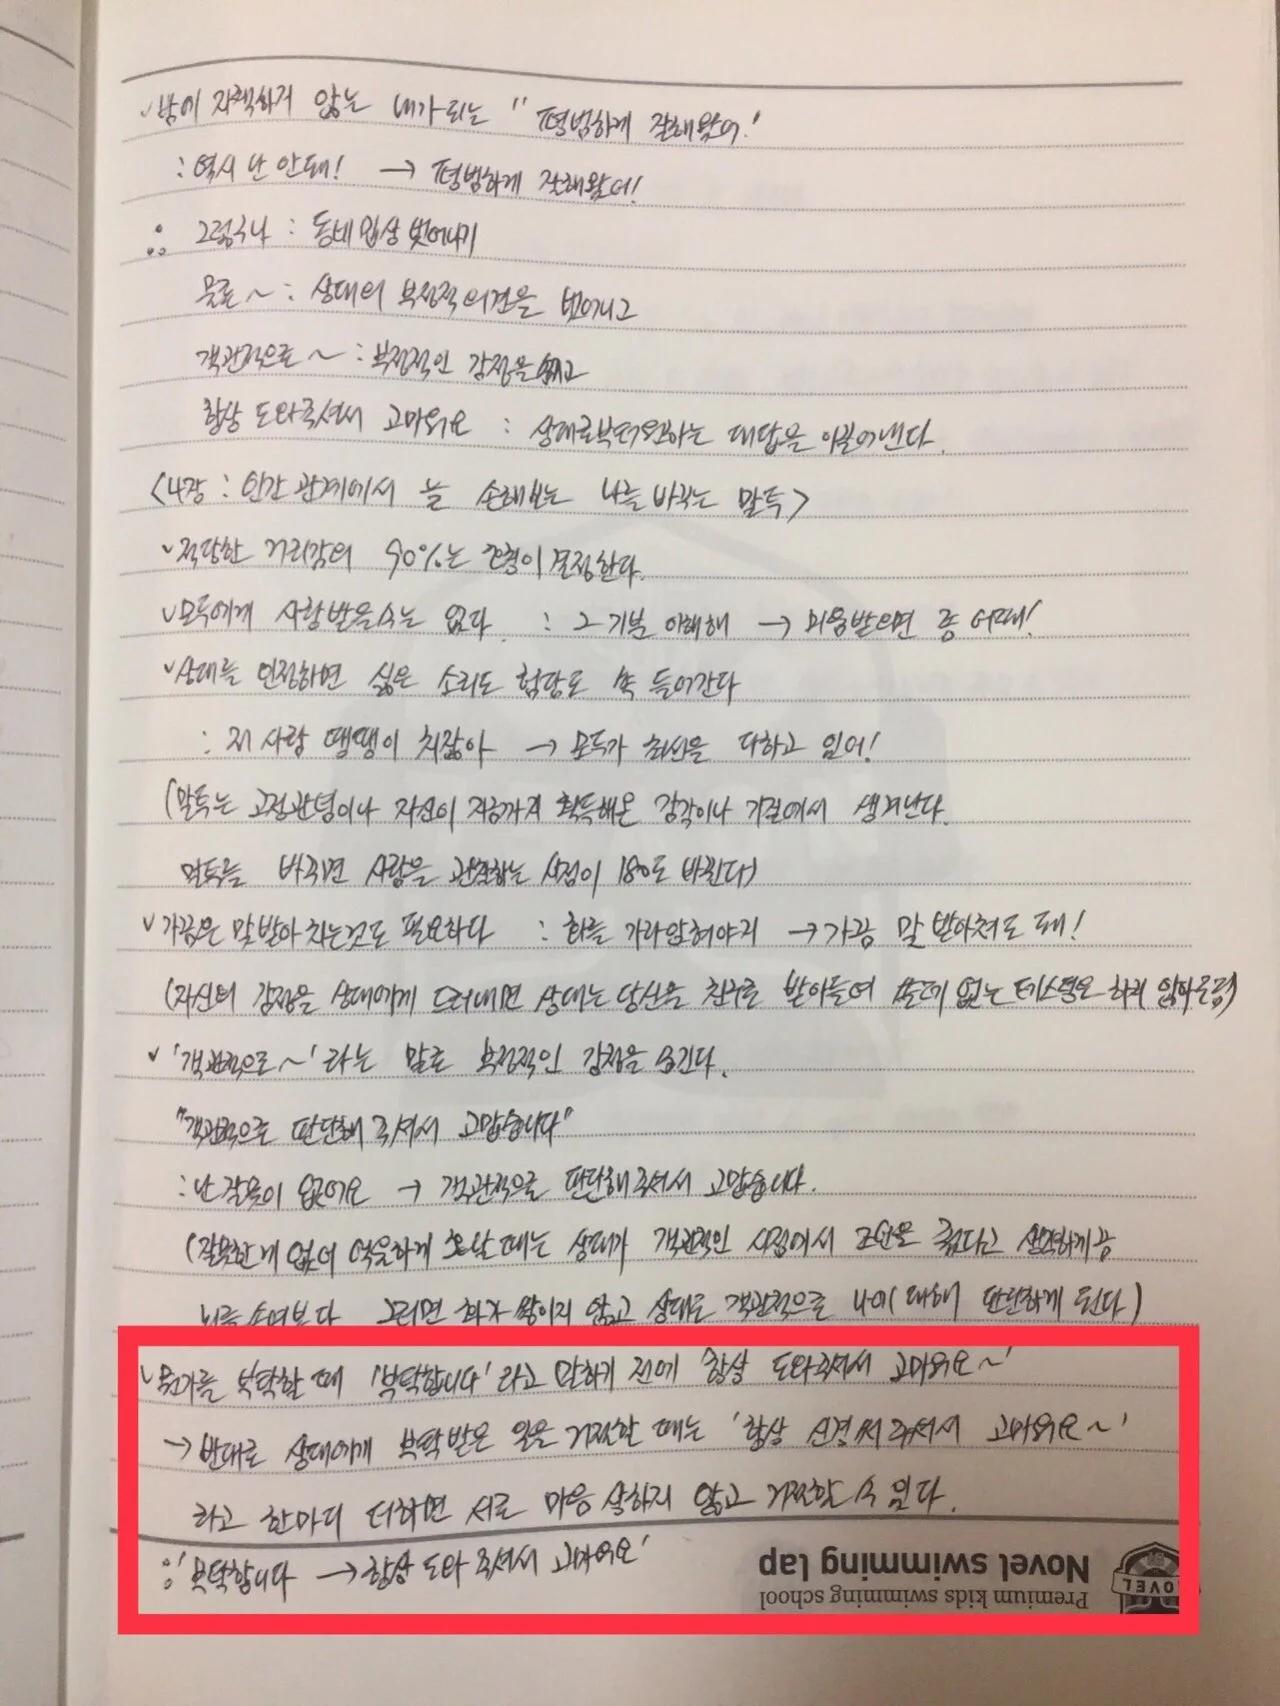 ✓밤에 자책하지 않는 내가 되는 "평범하게 잘해왔어!"
: 역시 난 안돼! → 평범하게 잘해왔어!
∴ 그렇구나 : 동네 밉상 벗어나기
물론~ : 상대의 부정적 의견을 벗어나고
객관적으로~ : 부정적인 감정을 숨기고
항상 도와주셔서 고마워요 : 상대로부터 원하는 대답을 이끌어낸다.
<4장 : 인간관계에서 늘 손해보는 나를 바꾸는 말투>
✓적당한 거리감의 90%는 균형이 결정한다.
✓모두에게 사랑받을 수는 없다. : 그 기분 이해해 → 미움받으면 좀 어때!
✓상대를 인정하면 싫은 소리도 험담도 쏙 들어간다
: 저 사람 땡땡이 치잖아 → 모두가 최선을 다하고 있어!
(말투는 고정관념이나 자신이 지금까지 획득해온 감각이나 기질에서 생겨난다.
말투를 바꾸면 사람을 관찰하는 시점이 180도 바뀐다)
✓가끔은 말 받아 치는것도 필요하다 : 화를 가라앉혀야지 → 가끔 말 받아쳐도 돼!
(자신의 감정을 상대에게 드러내면 상대는 당신을 친구로 받아들여 쓸데 없는 테스트는 하지 않아
✓'객관적으로~'라는 말로 부정적인 감정을 숨긴다.
"객관적으로 판단해 주셔서 고맙습니다"
: 난 잘못이 없어요 → 객관적으로 판단해 주셔서 고맙습니다.
(잘못한 게 없이 억울하게 혼날 때는 상대가 객관적인 시점에서 조언을 줬다고 생각하게끔
뇌를 속여보다 그러면 화가 쌓이지 않고 상대도 객관적으로 나에 대해 판단하게 된다)
✓뭔가를 부탁할 때 '부탁합니다'라고 말하기 전에 '항상 도와주셔서 고마워요~'
→ 반대로 상대에게 부탁받은 일을 거절할 때는 '항상 신경써 주셔서 고마워요~'
라고 한마디 더하면 서로 마음 상하지 않고 거절할 수 있다.
: '부탁합니다 → 항상 도와 주셔서 고마워요'
Novel swimming lap
Premium kids swimming school
NOVEL